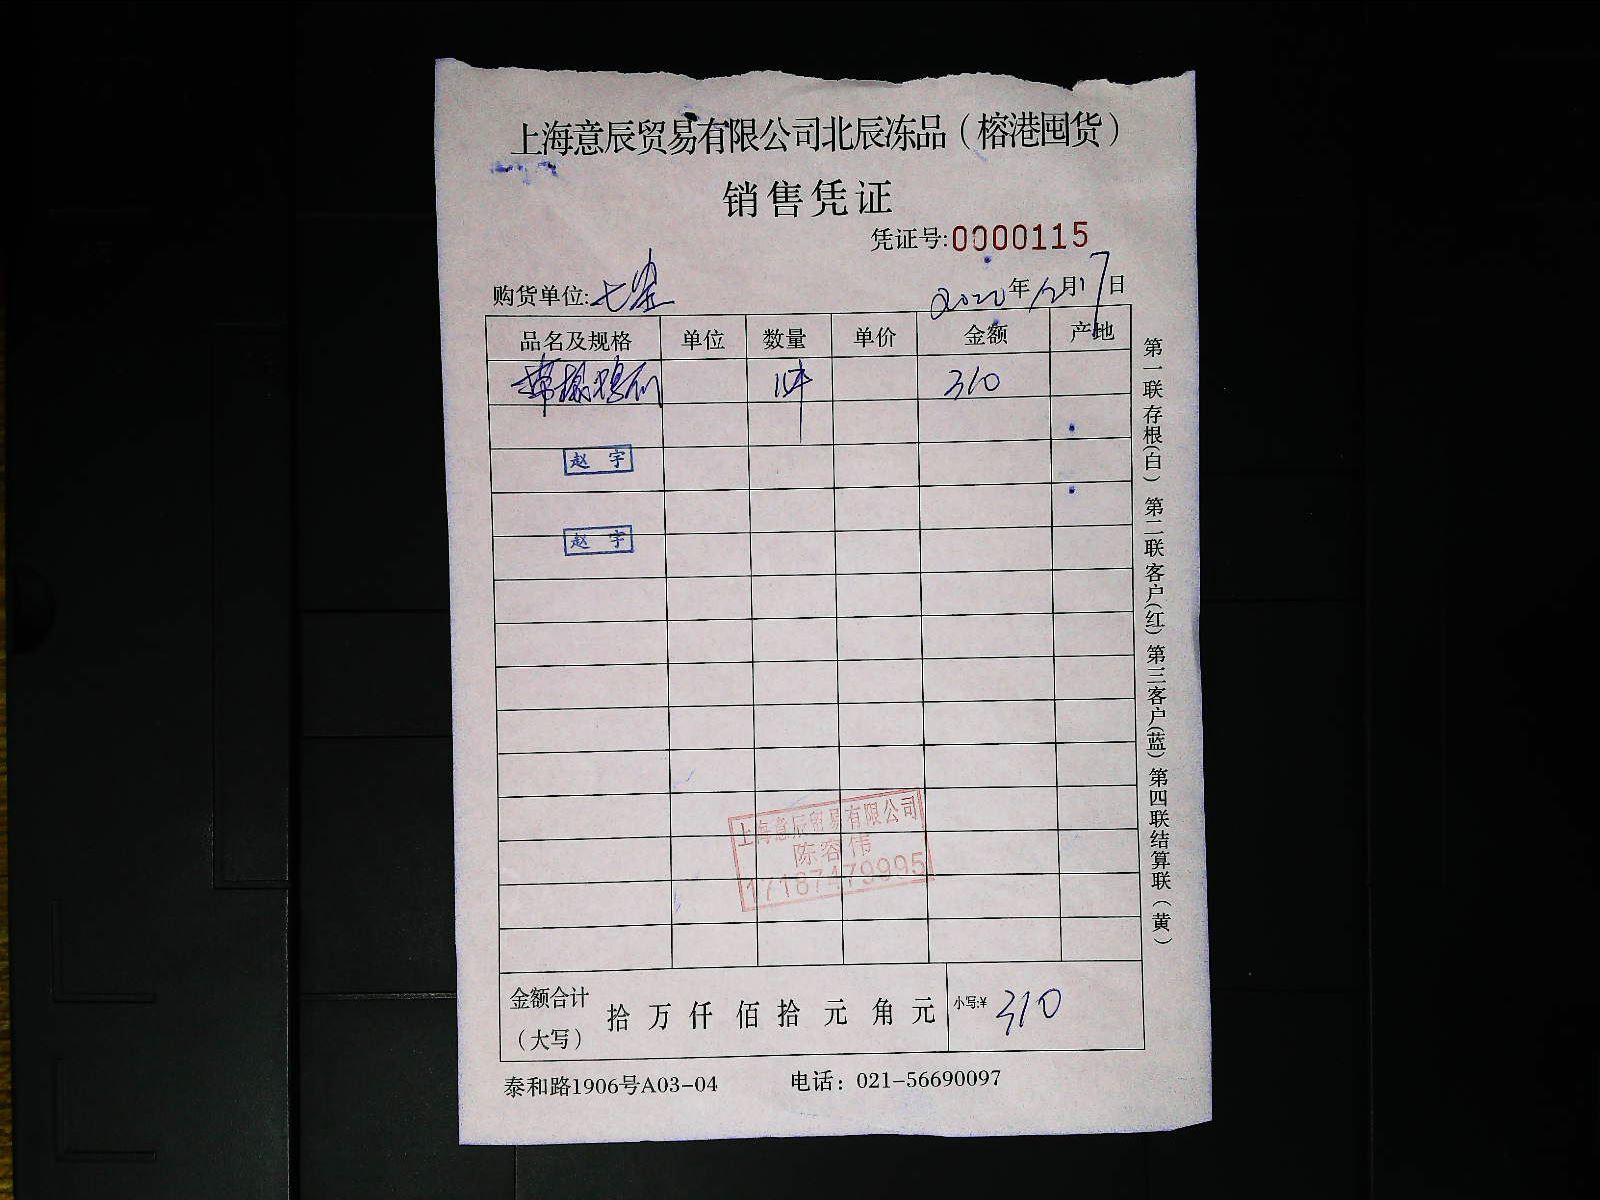 上海意辰贸易有限公司北辰冻品（榕港囤货）
销售凭证
凭证号:0000115
购货单位:七宝
2020年12月17日
品名及规格 单位 数量 单价 金额 产地
1件 310
赵 宇
赵 宇
上海意辰贸易有限公司
陈容伟
17187479995
金额合计（大写） 拾 万 仟 佰 拾 元 角 元 小写:¥ 310
泰和路1906号A03-04 电话：021-56690097
第一联存根(白) 第二联客户(红) 第三客户(蓝) 第四联结算联（黄）